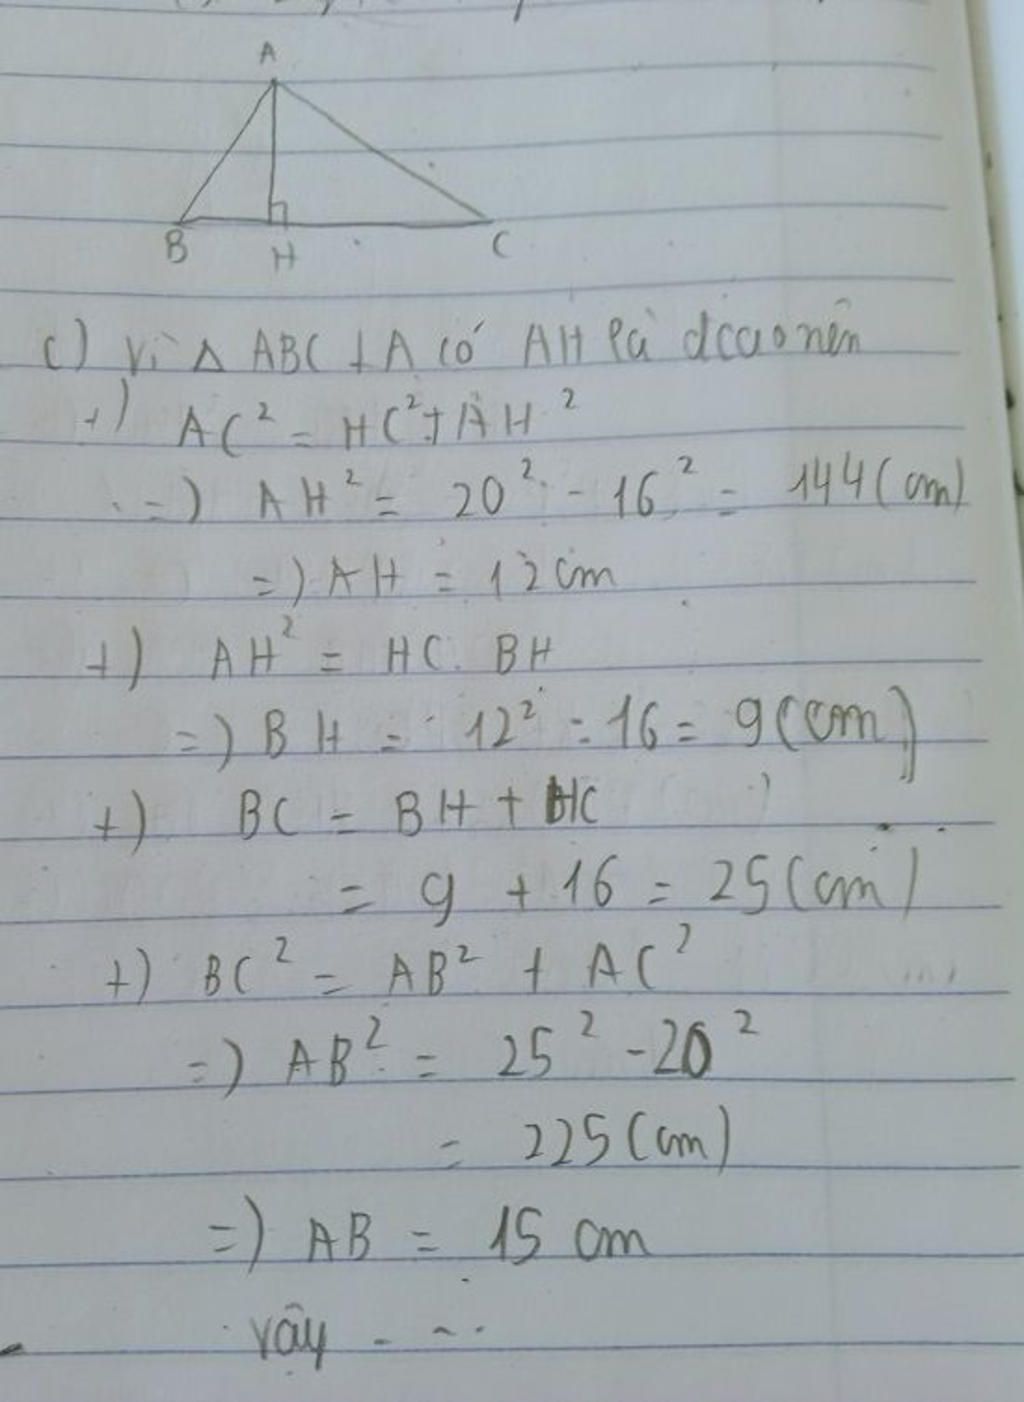 A
B
H
C
c) Vì △ ABC ⊥ A có AH là đcao nên
+) AC² = HC² + AH²
=) AH² = 20² - 16² = 144 (cm)
=) AH = 12 cm
+) AH² = HC. BH
=) BH = 12² : 16 = 9 (cm)
+) BC = BH + HC
= 9 + 16 = 25 (cm)
+) BC² = AB² + AC²
=) AB² = 25² - 20²
= 225 (cm)
=) AB = 15 cm
vậy - - -